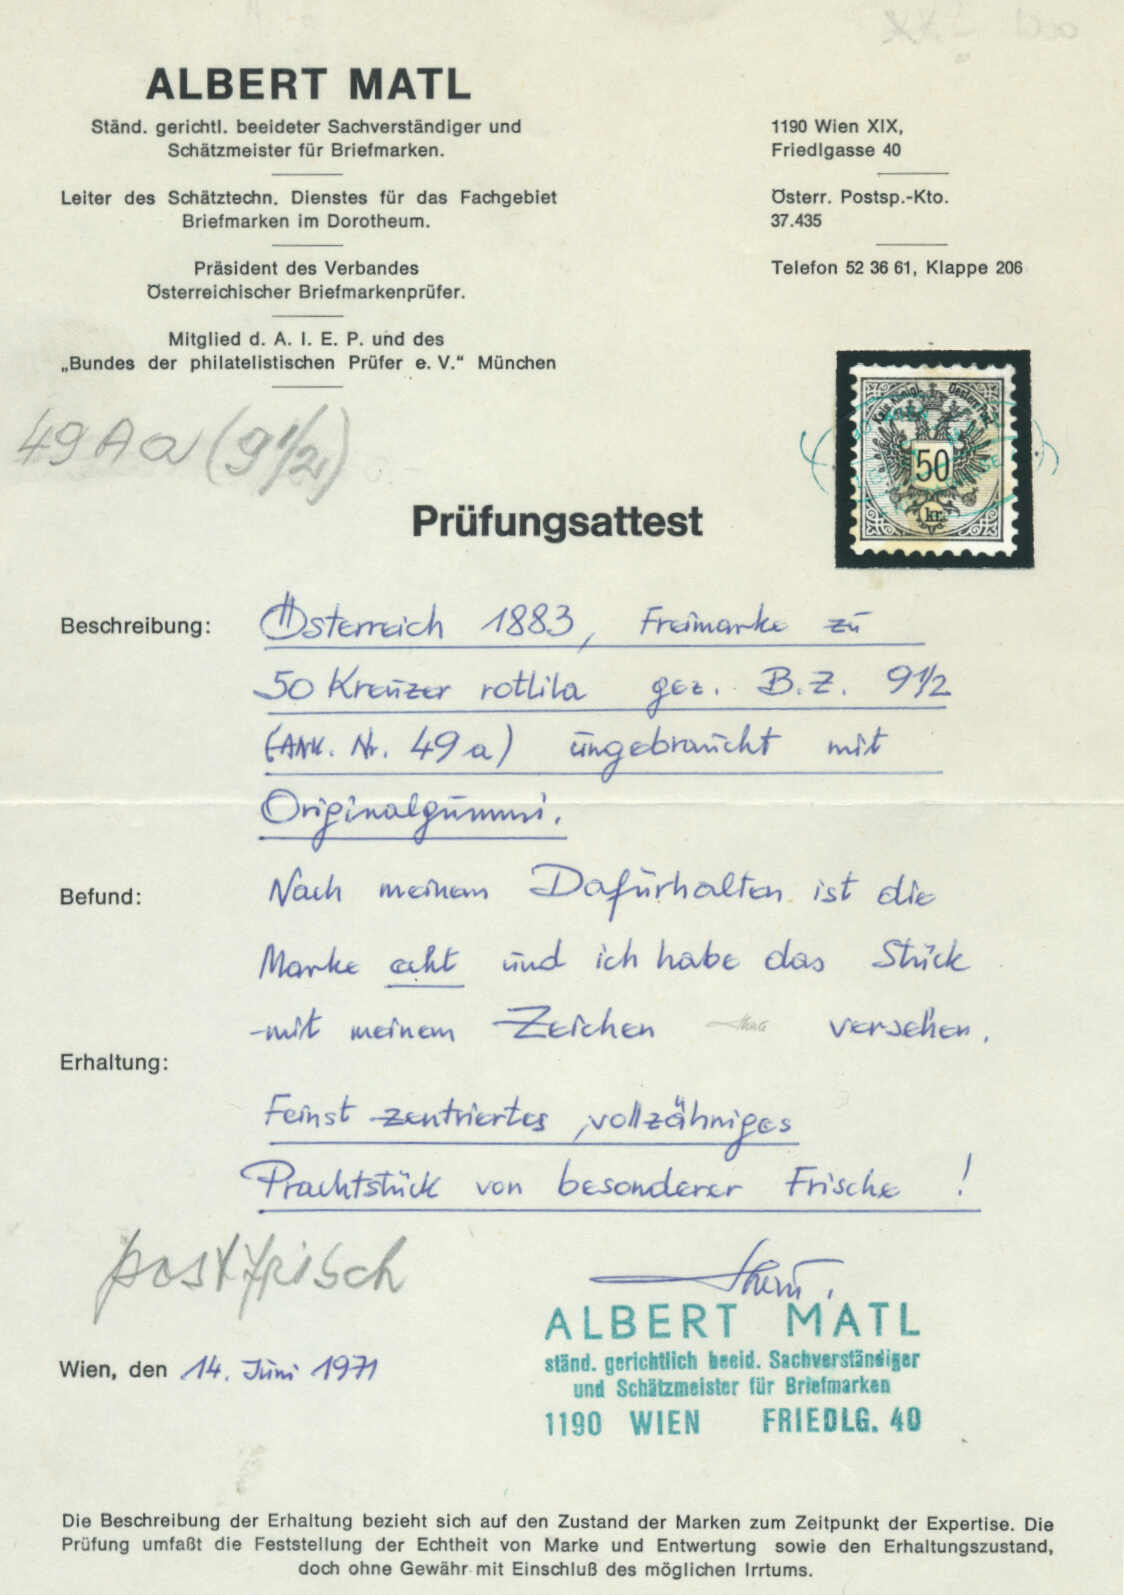 ALBERT MATL
Ständ. gerichtl. beeideter Sachverständiger und
Schätzmeister für Briefmarken.
Leiter des Schätztechn. Dienstes für das Fachgebiet
Briefmarken im Dorotheum.
Präsident des Verbandes
Österreichischer Briefmarkenprüfer.
Mitglied d. A. I. E. P. und des
„Bundes der philatelistischen Prüfer e. V." München
1190 Wien XIX,
Friedlgasse 40
Österr. Postsp.-Kto.
37.435
Telefon 52 36 61, Klappe 206
49Aa (9 1/2)
Kais. Königl. Oesterr. Post
50
kr.
Prüfungsattest
Beschreibung: Österreich 1883, Freimarke zu
50 Kreuzer rotlila gez. B.Z. 9 1/2
(ANK. Nr. 49a) ungebraucht mit
Originalgummi.
Befund: Nach meinem Dafürhalten ist die
Marke echt und ich habe das Stück
mit meinem Zeichen versehen.
Erhaltung:
Feinst zentriertes, vollzähniges
Prachtstück von besonderer Frische !
postfrisch
ALBERT MATL
ständ. gerichtlich beeid. Sachverständiger
und Schätzmeister für Briefmarken
1190 WIEN FRIEDLG. 40
Wien, den 14. Juni 1971
Die Beschreibung der Erhaltung bezieht sich auf den Zustand der Marken zum Zeitpunkt der Expertise. Die
Prüfung umfaßt die Feststellung der Echtheit von Marke und Entwertung sowie den Erhaltungszustand,
doch ohne Gewähr mit Einschluß des möglichen Irrtums.